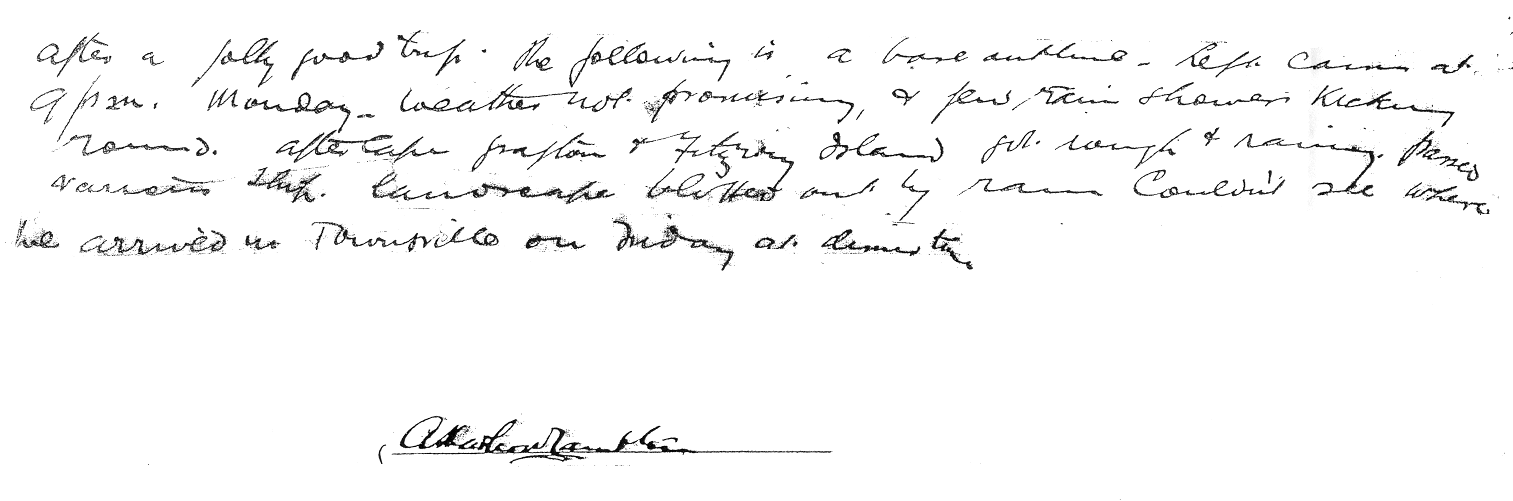 after a jolly good trip. The following is a bare outline - left Cairns at
9 pm. Monday - weather not promising, & few rain showers kicking
round. after Cape Grafton & Fitzroy Island got rough & raining. Passed
various ship. landscape blotted out by rain Couldn't see where
he arrived in Townsville on Friday at dinner